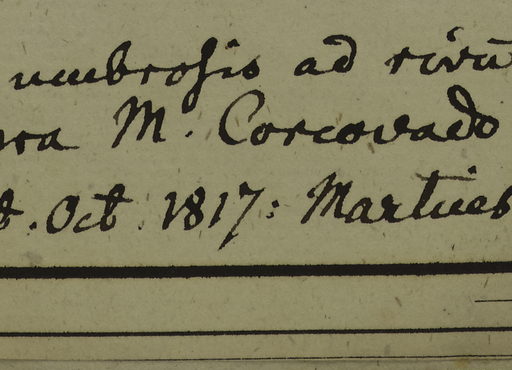 umbrosis ad rivū
M. Corcovado
Oct. 1817: Martius